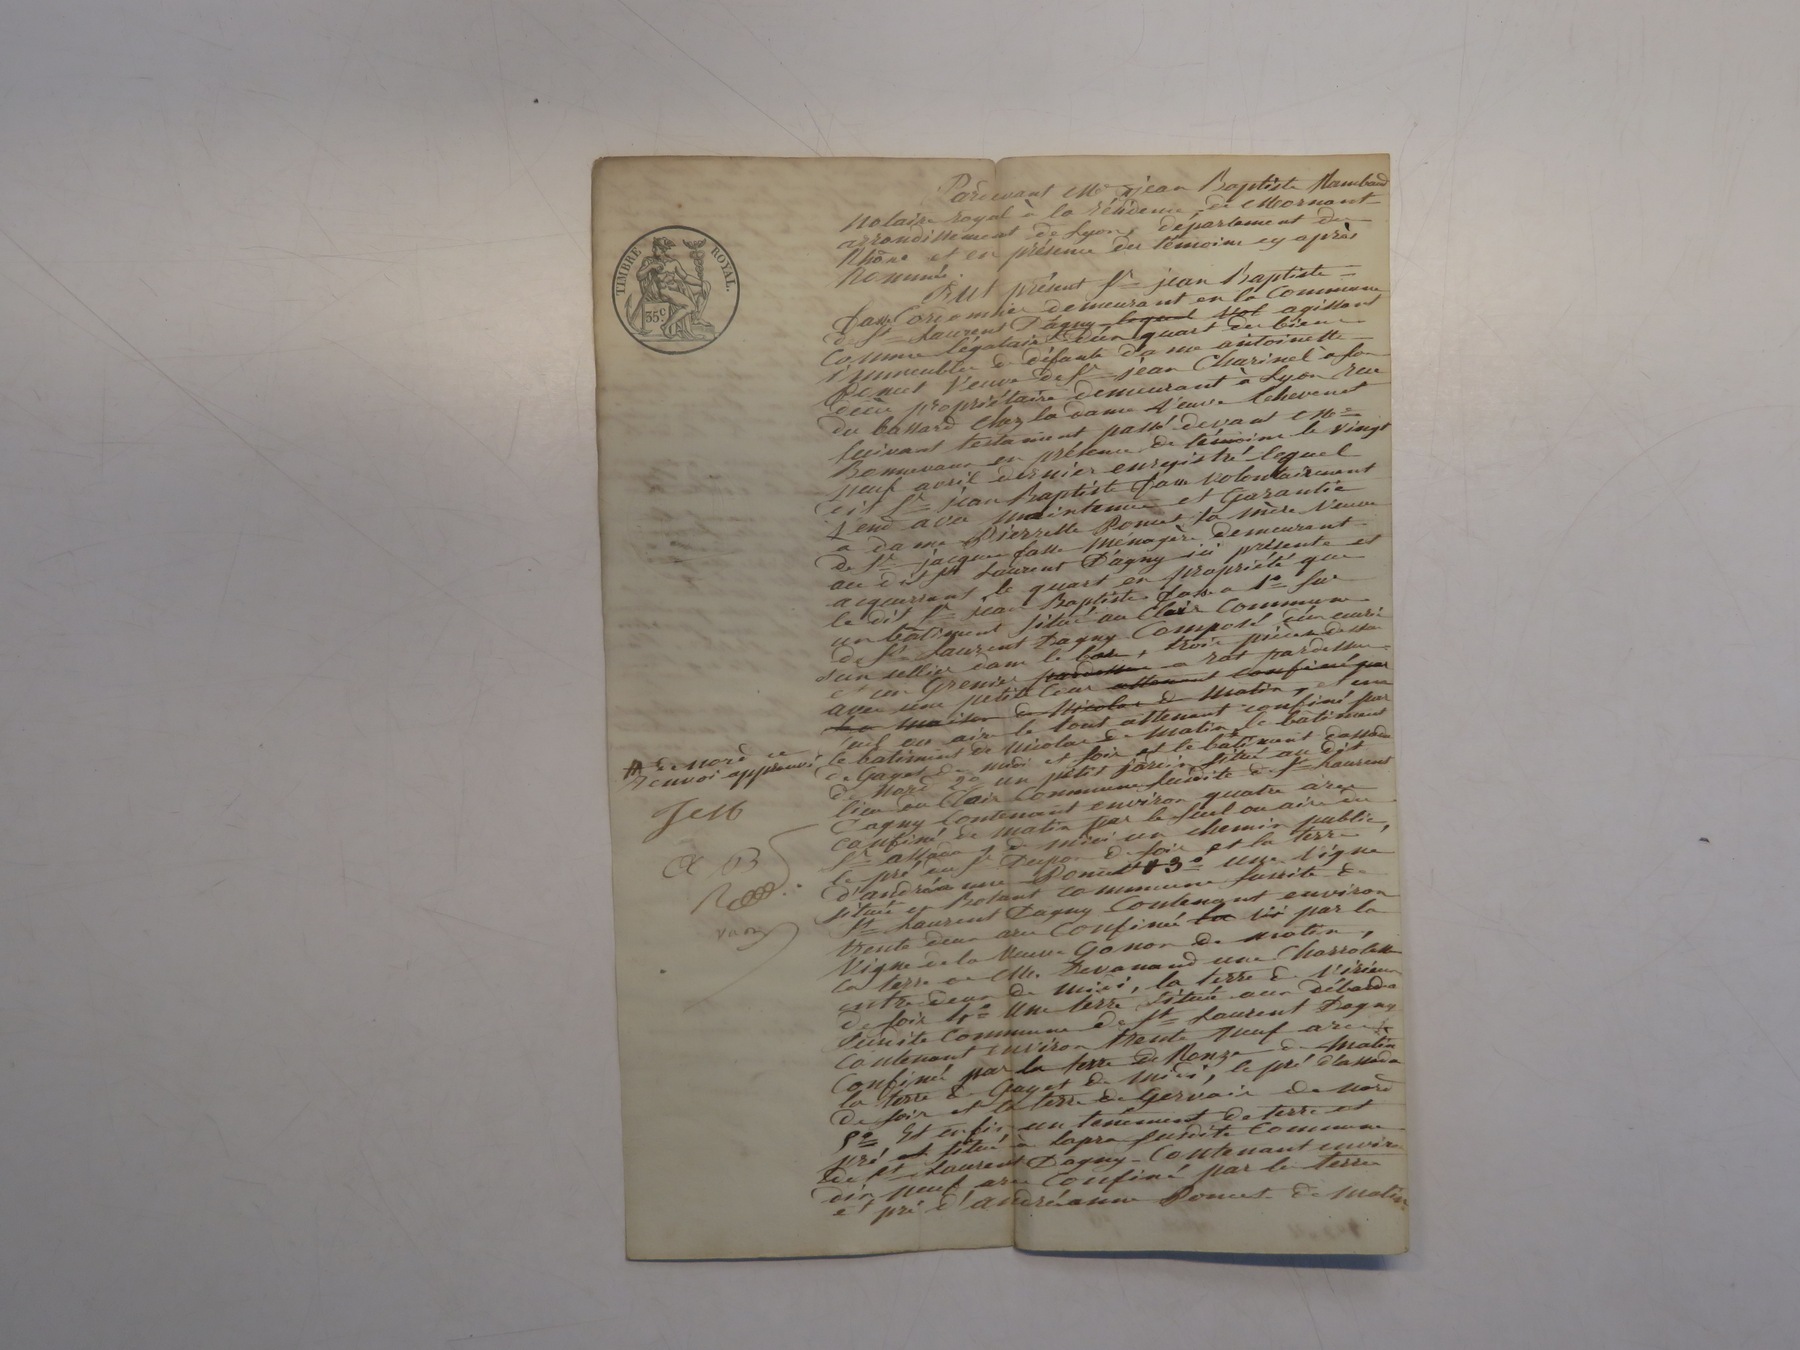 TIMBRE ROYAL.
35c
Pardevant Me jean Baptiste Rambaud
Notaire royal à la résidence de Mornant
arrondissement de Lyon, département du
Rhône et en présence des témoins cy après
Nommés.
Fut présent Sr jean Baptiste
demeurant en la Commune
de St Laurent D'agny agissant
Comme légataire d'un quart des biens
immeubles de défunte dame antoinette
Poncet Veuve de Sr jean Charinel à son
décès propriétaire demeurant à Lyon rue
du bassard Chez la dame Veuve
suivant testament passé devant Me
Bonnevaux en présence de témoins le vingt
neuf avril dernier enregistré lequel
dit Sr jean Baptiste volontairement
Vend avec maintenue et Garantie
a dame Pierrette Poncet sa mère Veuve
de Sr jacques Ménagère demeurant
au dit St Laurent D'agny ici présente et
acquérant le quart en propriété que
le dit Sr jean Baptiste a 1o sur
un bâtiment situé au Clair Commune
de St Laurent Dagny Composé d'un
d'un sellier dans le bas, trois pièces dessus
et un Grenier a rat pardessus
avec une petite Cour attenant confiné par
la maison de Nicolas de matin, et une
suel ou aire le tout attenant confiné par
le batiment de Nicolas de matin, le batiment
de Gayet de midi et soir et le batiment
de Nord 2o un petit jardin situé au dit
lieu du Clair Commune susdite de St Laurent
Dagny Contenant environ quatre ares
confiné de matin par le suel ou aire du
Sr de midi un chemin public,
le pré du Sr de soir et la terre
d'andréanne Poncet # 3o une Vigne
située en Botant commune susdite de
St Laurent Dagny Contenant environ
trente deux ares Confiné par la
Vigne de la Veuve Gonon de matin,
la terre de Mr. une Charrotte
entre deux de midi, la terre de
de soir 4o Une terre située aux
susdite Commune de St Laurent Dagny
Contenant environ trente Neuf ares
Confiné par la terre de Ronze de Matin
la terre de Gayet de midi, le pré
de soir et la terre de Gervais de nord
5o Et enfin un tenement de terre et
pré situé à Lapra susdite Commune
de St Laurent Dagny Contenant environ
dix neuf ares Confiné par la terre
et pré d'andréanne Poncet de matin
# de nord ce
renvoi approuvé